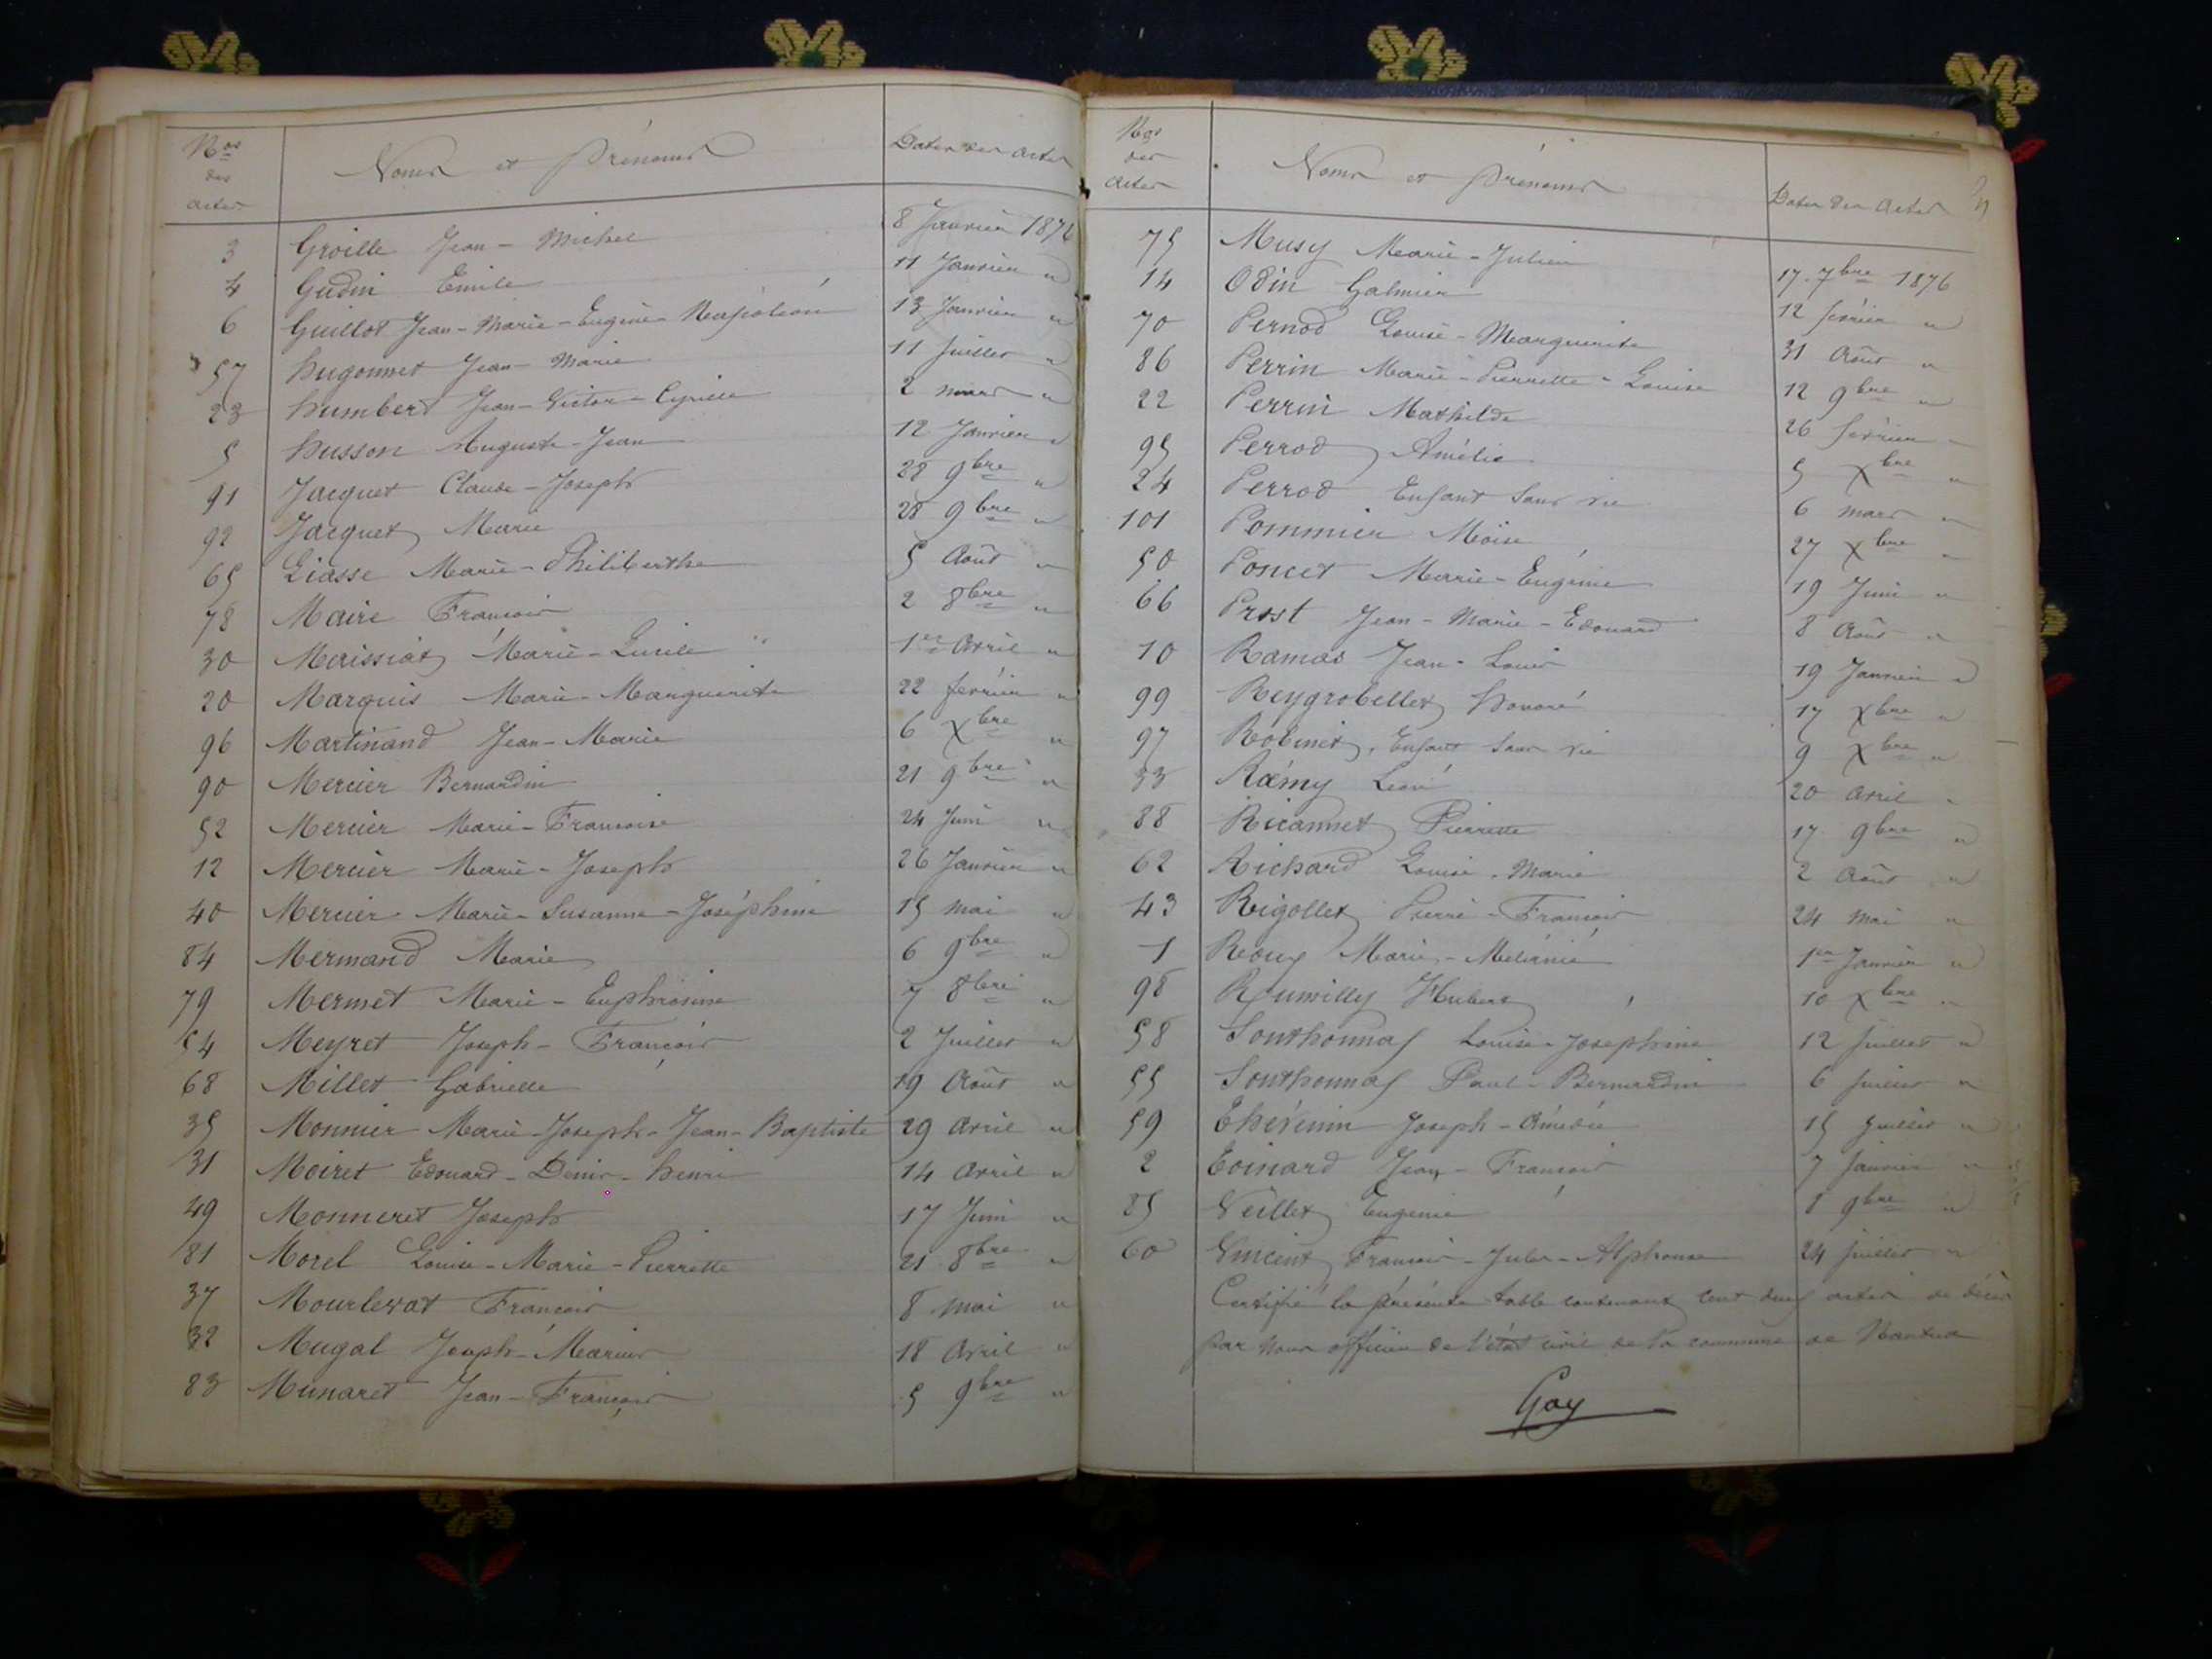 Nos des actes Noms et Prénoms Dates des actes
3 Groille Jean-Michel 8 Janvier 1876
4 Gudin Emile 11 Janvier "
6 Guillot Jean-Marie-Eugène-Napoléon 13 Janvier "
57 Hugonnet Jean-Marie 11 Juillet "
23 Humbert Jean-Victor-Cyrille 2 mars "
5 Husson Auguste-Jean 12 Janvier "
91 Jacquet Claude-Joseph 28 9bre "
92 Jacquet Marie 28 9bre "
65 Liasse Marie-Philiberthe 5 Août "
78 Maire François 2 8bre "
30 Maissiat Marie-Lucile 1er Avril "
20 Marquis Marie-Marguerite 22 février "
96 Martinand Jean-Marie 6 Xbre "
90 Mercier Bernardin 21 9bre "
52 Mercier Marie-Françoise 24 Juin "
12 Mercier Marie-Joseph 26 Janvier "
40 Mercier Marie-Susanne-Joséphine 15 mai "
84 Mermand Marie 6 9bre "
79 Mermet Marie-Euphrosine 7 8bre "
54 Meyret Joseph-François 2 Juillet "
68 Millet Gabrielle 19 Août "
35 Monnier Marie-Joseph-Jean-Baptiste 29 Avril "
31 Moiret Edouard-Denis-henri 14 Avril "
49 Monneret Joseph 17 Juin "
81 Morel Louise-Marie-Pierrette 21 8bre "
37 Mourlevat François 8 mai "
32 Mugal Joseph-Marius 18 Avril "
83 Munaret Jean-François 5 9bre "
Nos des actes Noms et Prénoms Dates des actes
75 Musy Marie-Julien 17 7bre 1876
14 Odin Galmier 12 février "
70 Pernod Louise-Marguerite 31 Août "
86 Perrin Marie-Pierrette-Louise 12 9bre "
22 Perrin Mathilde 26 février "
95 Perrod Amélie 5 Xbre "
24 Perrod Enfant sans vie 6 mars "
101 Pommier Moïse 27 Xbre "
50 Poncet Marie-Eugénie 19 Juin "
66 Prost Jean-Marie-Edouard 8 Août "
10 Ramas Jean-Louis 19 Janvier "
99 Reygrobellet honoré 17 Xbre "
97 Robinet, Enfant sans vie 9 Xbre "
33 Rémy Léon 20 Avril "
88 Ricannet Pierrette 17 9bre "
62 Richard Louise-Marie 2 Août "
43 Rigollet Pierre-François 24 mai "
1 Roux Marie-Mélanie 1er Janvier "
98 Rumilly Hubert 10 Xbre "
58 Southonnax Louise-Joséphine 12 Juillet "
55 Southonnax Paul-Bernardin 6 Juillet "
59 Thévenin Joseph-Amédée 15 Juillet "
2 Toinard Jean-François 7 Janvier "
85 Veillet Eugénie 1 9bre "
60 Vincent François-Jules-Alphonse 24 Juillet "
Certifié la présente table contenant cent deux actes de décès
par nous officier de l'état civil de la commune de Nantua
Gay